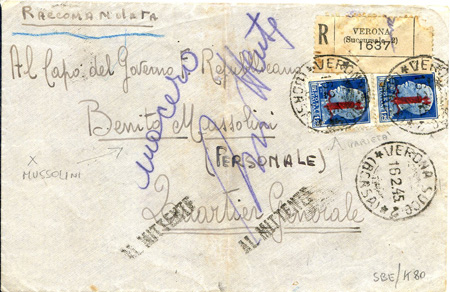 Raccomandata
R
VERONA
(Succursale 2)
1637
Al Capo del Governo Repubblicano
Benito Mussolini
(PERSONALE)
Quartier Generale
X
MUSSOLINI
VARIETA'
VERONA
VERONA SUCC
16.2.45
AL MITTENTE
AL MITTENTE
SBE/K80